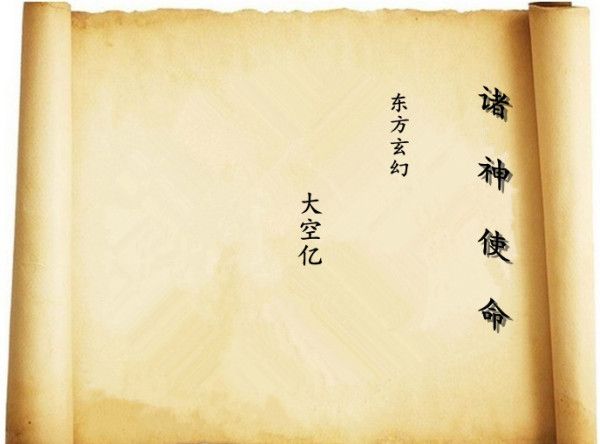 诸神使命
东方玄幻
大空亿